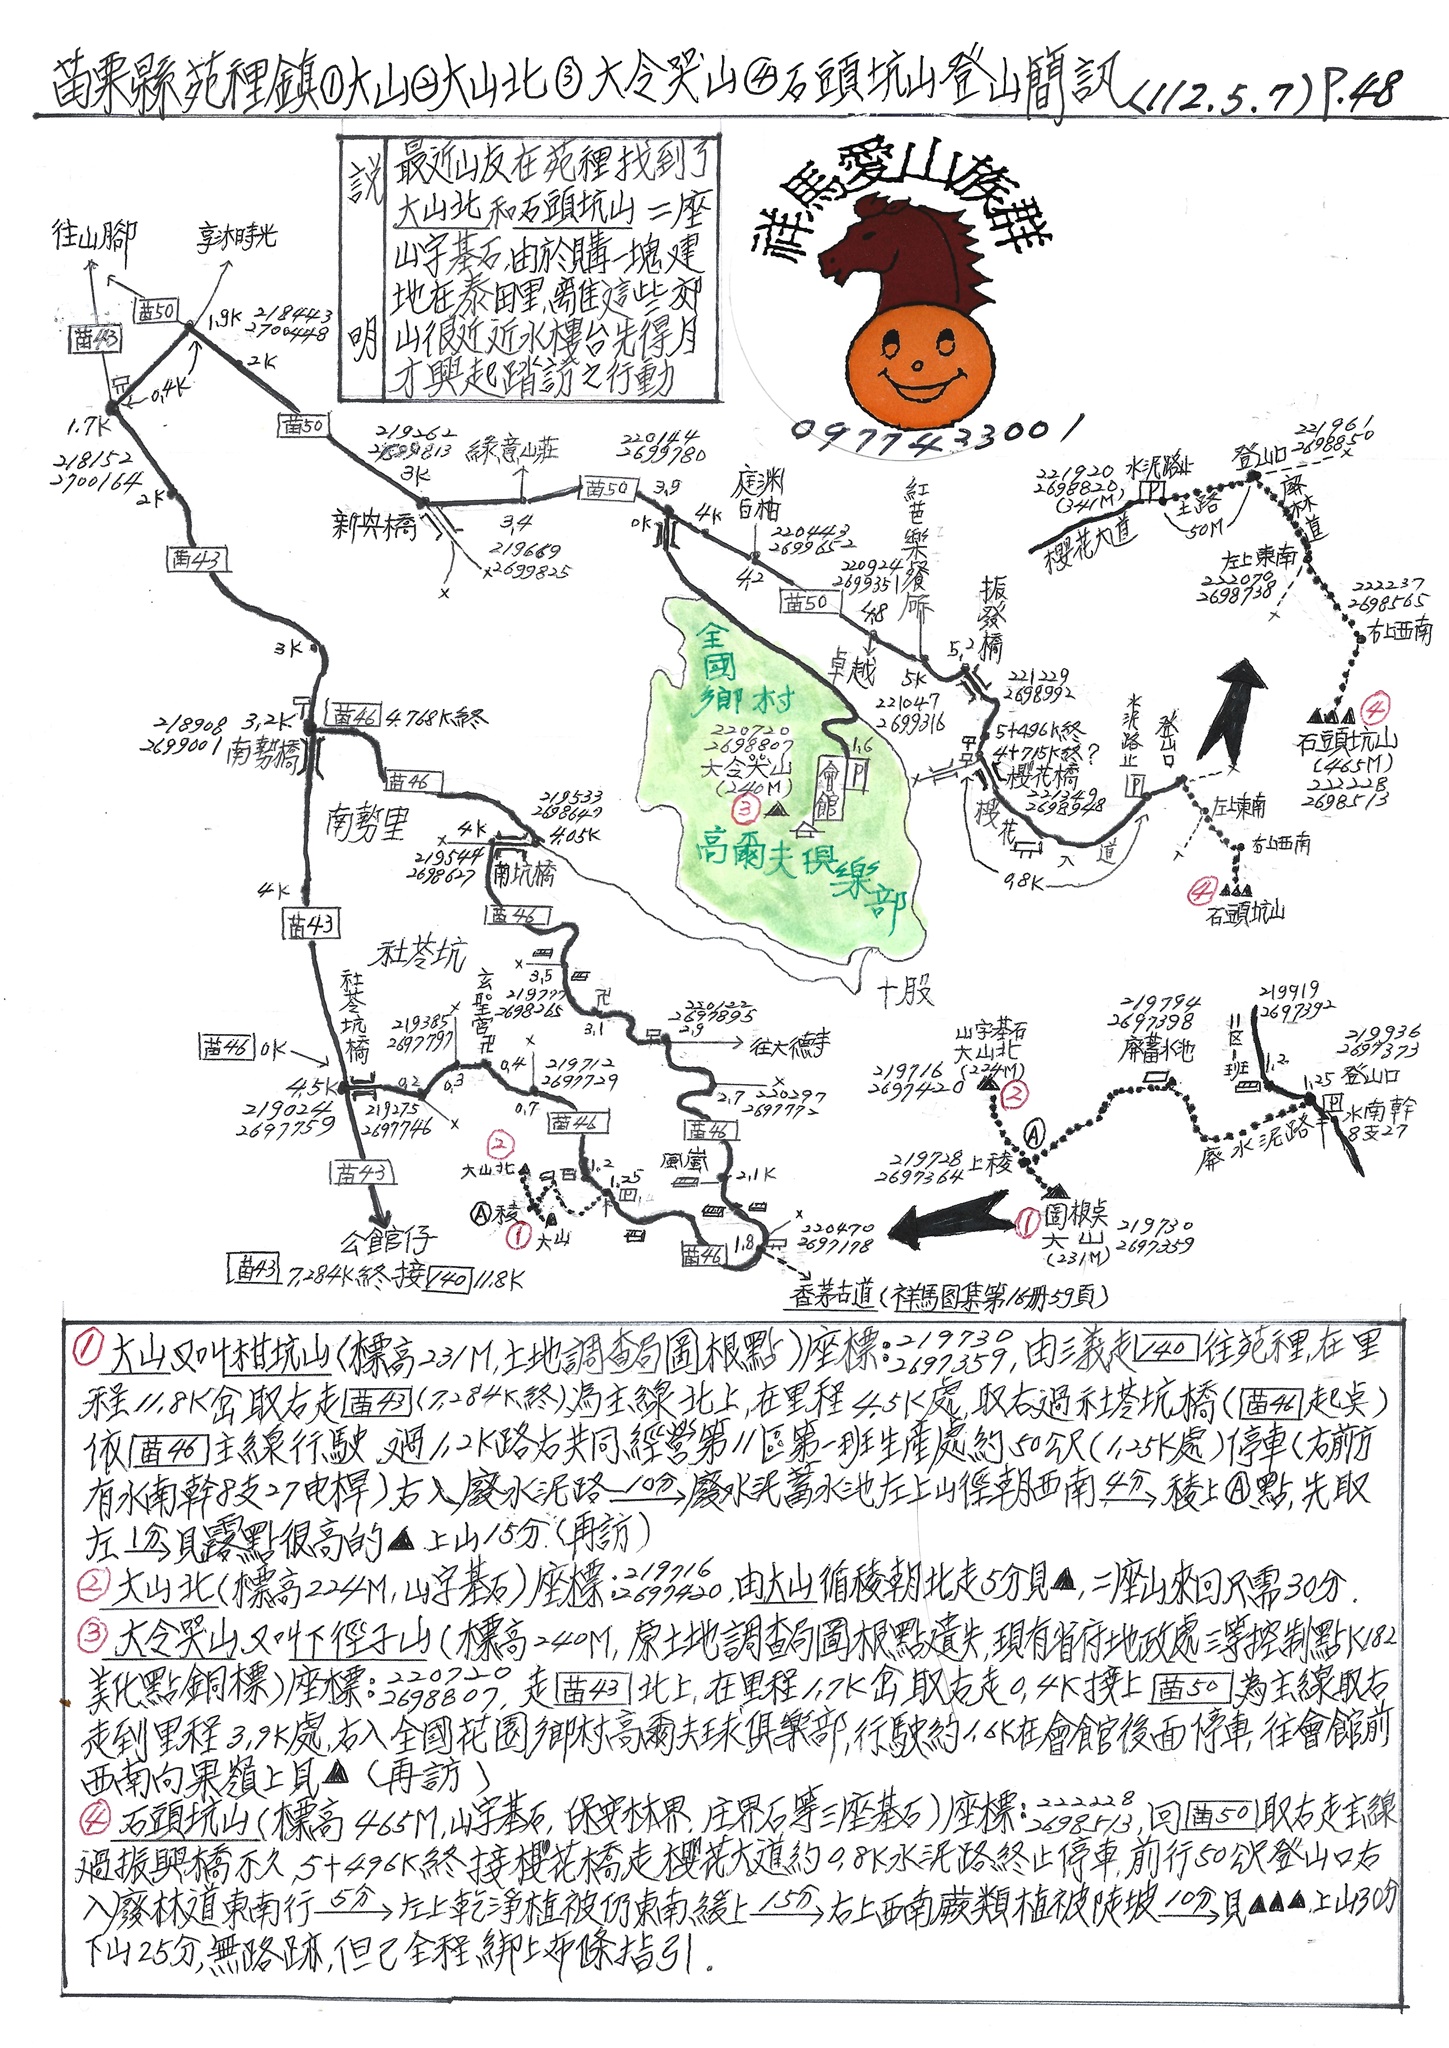 苗栗縣苑裡鎮①大山②大山北③大令哭山④石頭坑山登山簡訊(112.5.7)P.48
說明
最近山友在苑裡找到了
大山北和石頭坑山二座
山字基石,由於購一塊建
地在泰田里,離這些郊
山很近近水樓台先得月
才興起踏訪之行動
祥馬愛山族群
0977433001
往山腳
享沐時光
苗50
苗43
1.9K
218443
2700448
2K
0.4K
1.7K
218152
2700164
2K
苗50
219262
3K
新興橋
綠意山莊
3.4
219669
2699825
苗50
220144
2699780
3.9
0K
4K
庭淵白柚
220443
2699652
4.2
苗50
220924
2699351
4.8
卓越
紅芭樂餐廳
5K
221047
2699316
振發橋
5.2
221229
2698992
5+496K終
4+715K終?
櫻花橋
221349
2698948
櫻花大道
0.8K
水泥路止
P
登山口
左上東南
右上西南
④
石頭坑山
221920
2698820
(341M)
水泥路止
P
櫻花大道
土路
50M
登山口
221961
2698850
廢林道
左上東南
222070
2698738
222237
2698565
右上西南
④
石頭坑山
(465M)
222228
2698513
全國
鄉村
220720
2698807
大令哭山
(240M)
③
1.6
會館
P
高爾夫俱樂部
十股
苗43
3K
218908
2699001
3.2K
南勢橋
苗46
4.768K終
苗46
南勢里
219533
2698647
4K
4.05K
219544
2698627
南坑橋
4K
苗43
苗46
社苓坑
3.5
219777
2698265
3.1
220122
2697895
2.9
往大德寺
2.7
220297
2697772
苗46
風嵐
2.1K
220470
2697178
1.8
苗46
香茅古道(祥馬图集第16册59頁)
社苓坑橋
苗46
0K
4.5K
219024
2697759
0.2
219275
2697746
219385
2697797
0.3
玄聖宮
0.4
0.7
219712
2697729
苗46
1.2
1.25
②
大山北
Ⓐ稜
①
大山
苗43
公館仔
苗43 7.284K終接140 11.8K
山字基石
大山北
(224M)
219716
2697420
②
Ⓐ
219728
2697364
上稜
①
圖根桌
大山
(231M)
219730
2697359
219794
2697398
廢蓄水池
廢水泥路
219919
2697392
11區1班
1.2
219936
2697373
1.25
登山口
P
水南幹
8支27
①大山又叫柑坑山(標高231M,土地調查局圖根點)座標:219730 2697359,由三義走140往苑裡,在里
程11.8K岔取右走苗43(7.284K終)為主線北上,在里程4.5K處,取右過社苓坑橋(苗46起桌)
依苗46主線行駛,過1.2K路右共同經營第11區第一班生產處約50公尺(1.25K處)停車(右前方
有水南幹8支27电桿)右入廢水泥路10分→廢水泥蓄水池左上山徑朝西南4分→稜上Ⓐ點,先取
左1分→見露點很高的▲上山15分.(再訪)
②大山北(標高224M,山字基石)座標:219716 2697420,由大山循稜朝北走5分見▲,二座山來回只需30分.
③大令哭山又叫下徑子山(標高240M,原土地調查局圖根點遺失,現有省府地政處三等控制點K182
美化點銅標)座標:220720 2698807,走苗43北上,在里程1.7K岔取右走0.4K接上苗50為主線取右
走到里程3.9K處,右入全國花園鄉村高爾夫球俱樂部,行駛約1.6K在會館後面停車,往會館前
西南向果嶺上見▲(再訪)
④石頭坑山(標高465M,山字基石,保安林界.庄界石等三座基石)座標:222228 2698513,回苗50取右走主線
過振興橋不久,5+496K終接櫻花橋走櫻花大道約0.8K水泥路終止停車,前行50公尺登山口右
入廢林道東南行5分→左上乾淨植被仍東南緩上15分→右上西南蕨類植被陡坡10分→見▲▲▲,上山30分
下山25分,無路跡,但已全程綁上布條指引.